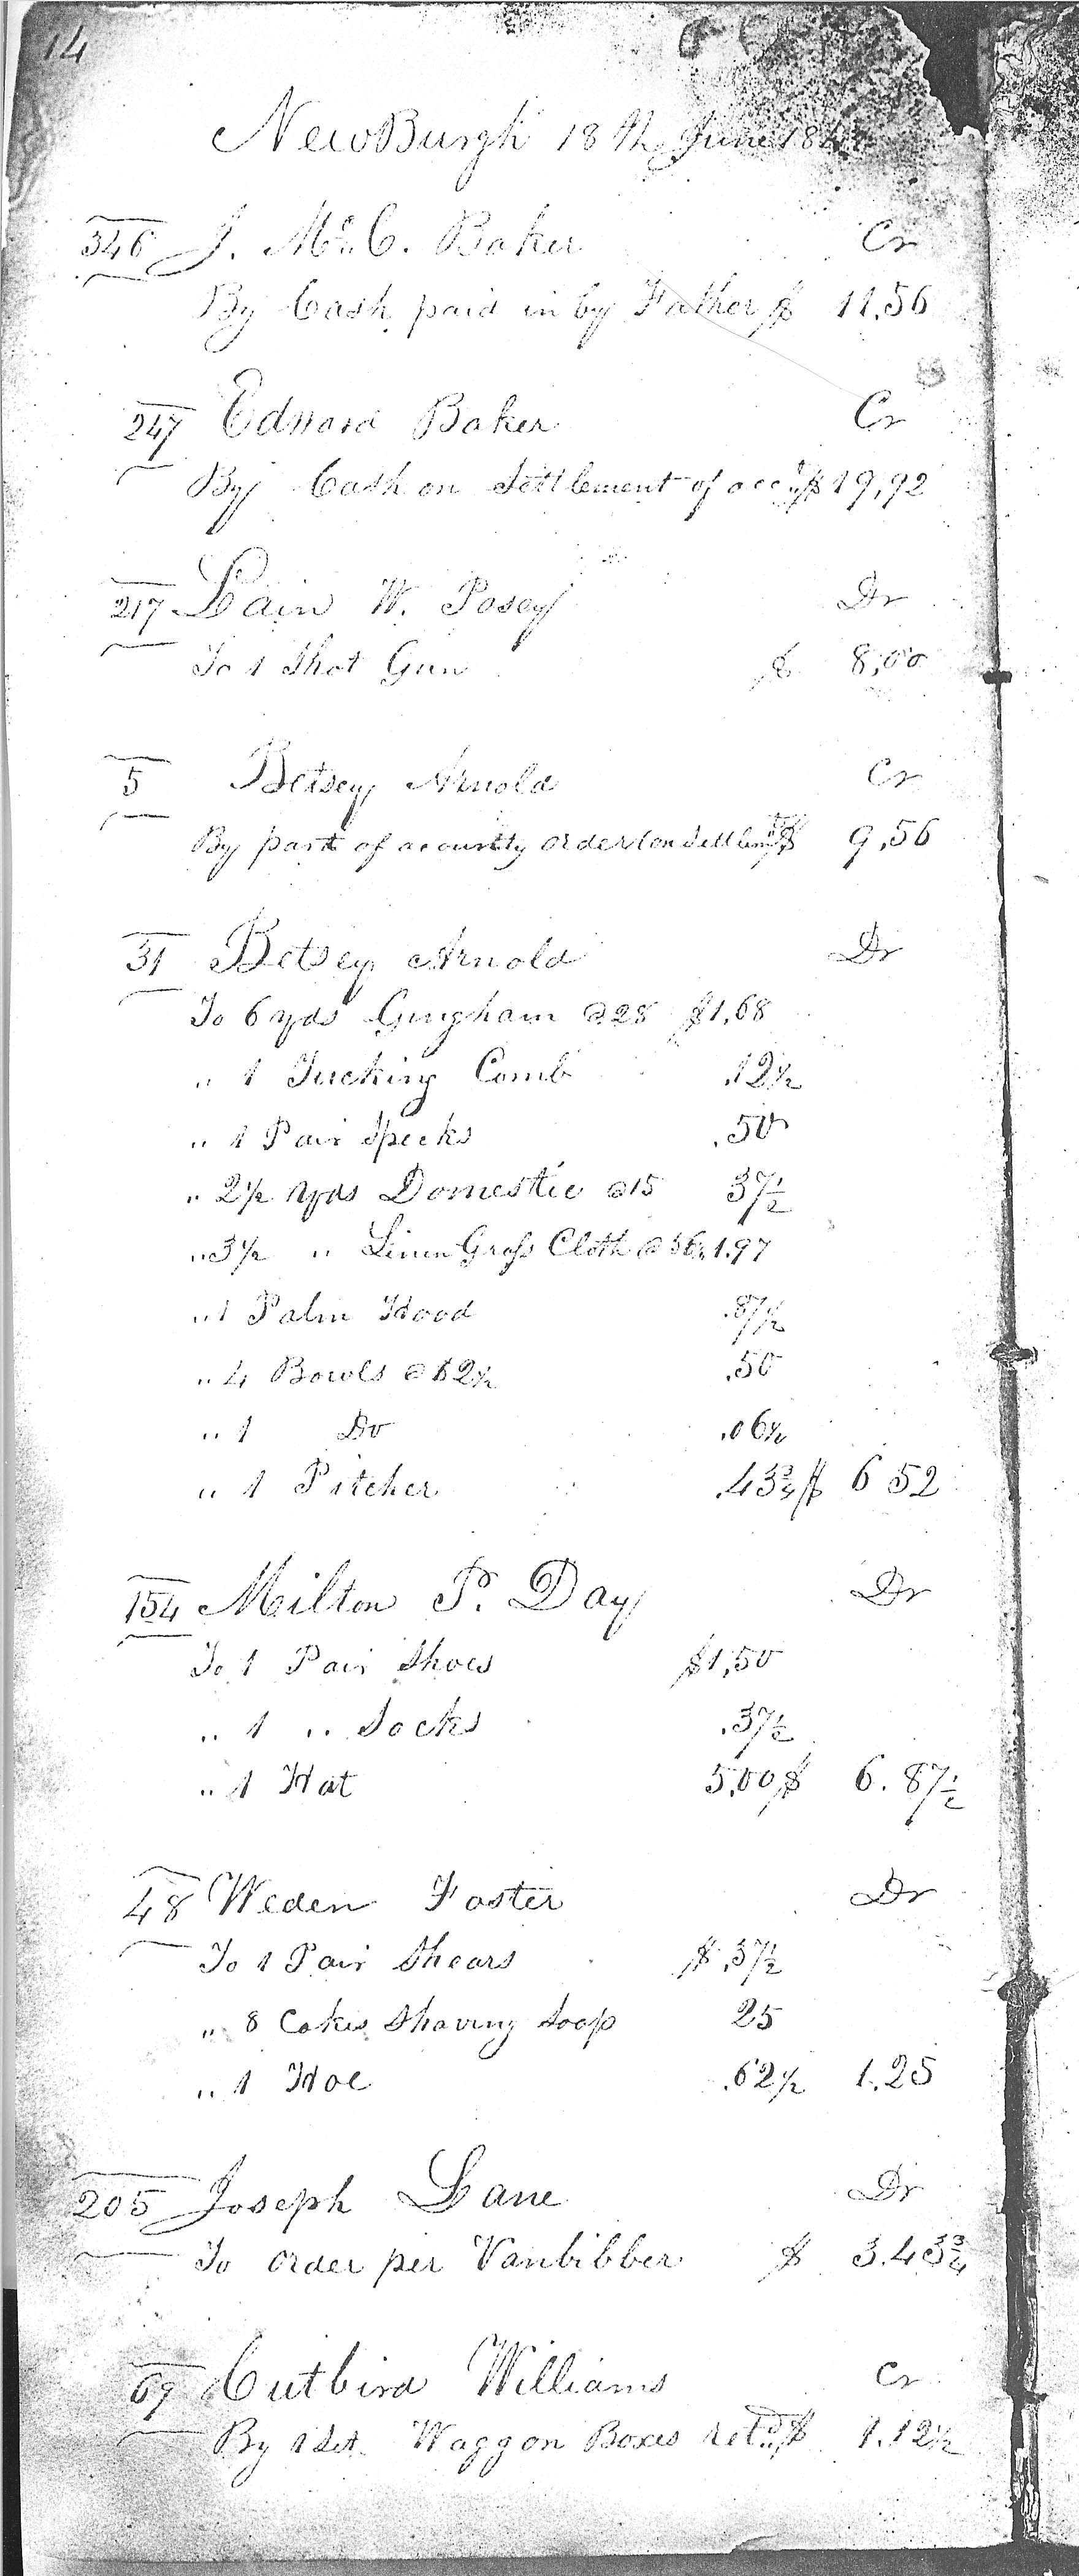 14
NewBurgh 18th June 18
346 J. McC. Baker Cr
By Cash paid in by Father $ 11,56
247 Edward Baker Cr
By Cash on Settlement of acct $ 19,92
217 Lain W. Posey Dr
To 1 Shot Gun $ 8,00
5 Betsey Arnold Cr
By part of a county order (on Settlemt $ 9,56
31 Betsey Arnold Dr
To 6 yds Gingham @28 $1,68
" 1 Tucking Comb .12½
" 1 Pair Specks .50
" 2½ yds Domestic @15 37½
" 3½ " Linen Grass Cloth @56¼ 1.97
" 1 Palm Hood .87½
" 4 Bowls @12½ .50
" 1 Do .06¼
" 1 Pitcher .43¾ $ 6 52
154 Milton P. Day Dr
To 1 Pair Shoes $1,50
" 1 " Socks .37½
" 1 Hat 5,00 $ 6.87½
48 Weden Foster Dr
To 1 Pair Shears $ .37½
" 8 Cakes Shaving Soap 25
" 1 Hoe .62½ 1.25
205 Joseph Lane Dr
To order per Vanbibber $ 3.43¾
69 Cutbird Williams Cr
By 1 Set Waggon Boxes retd $ 1.12½